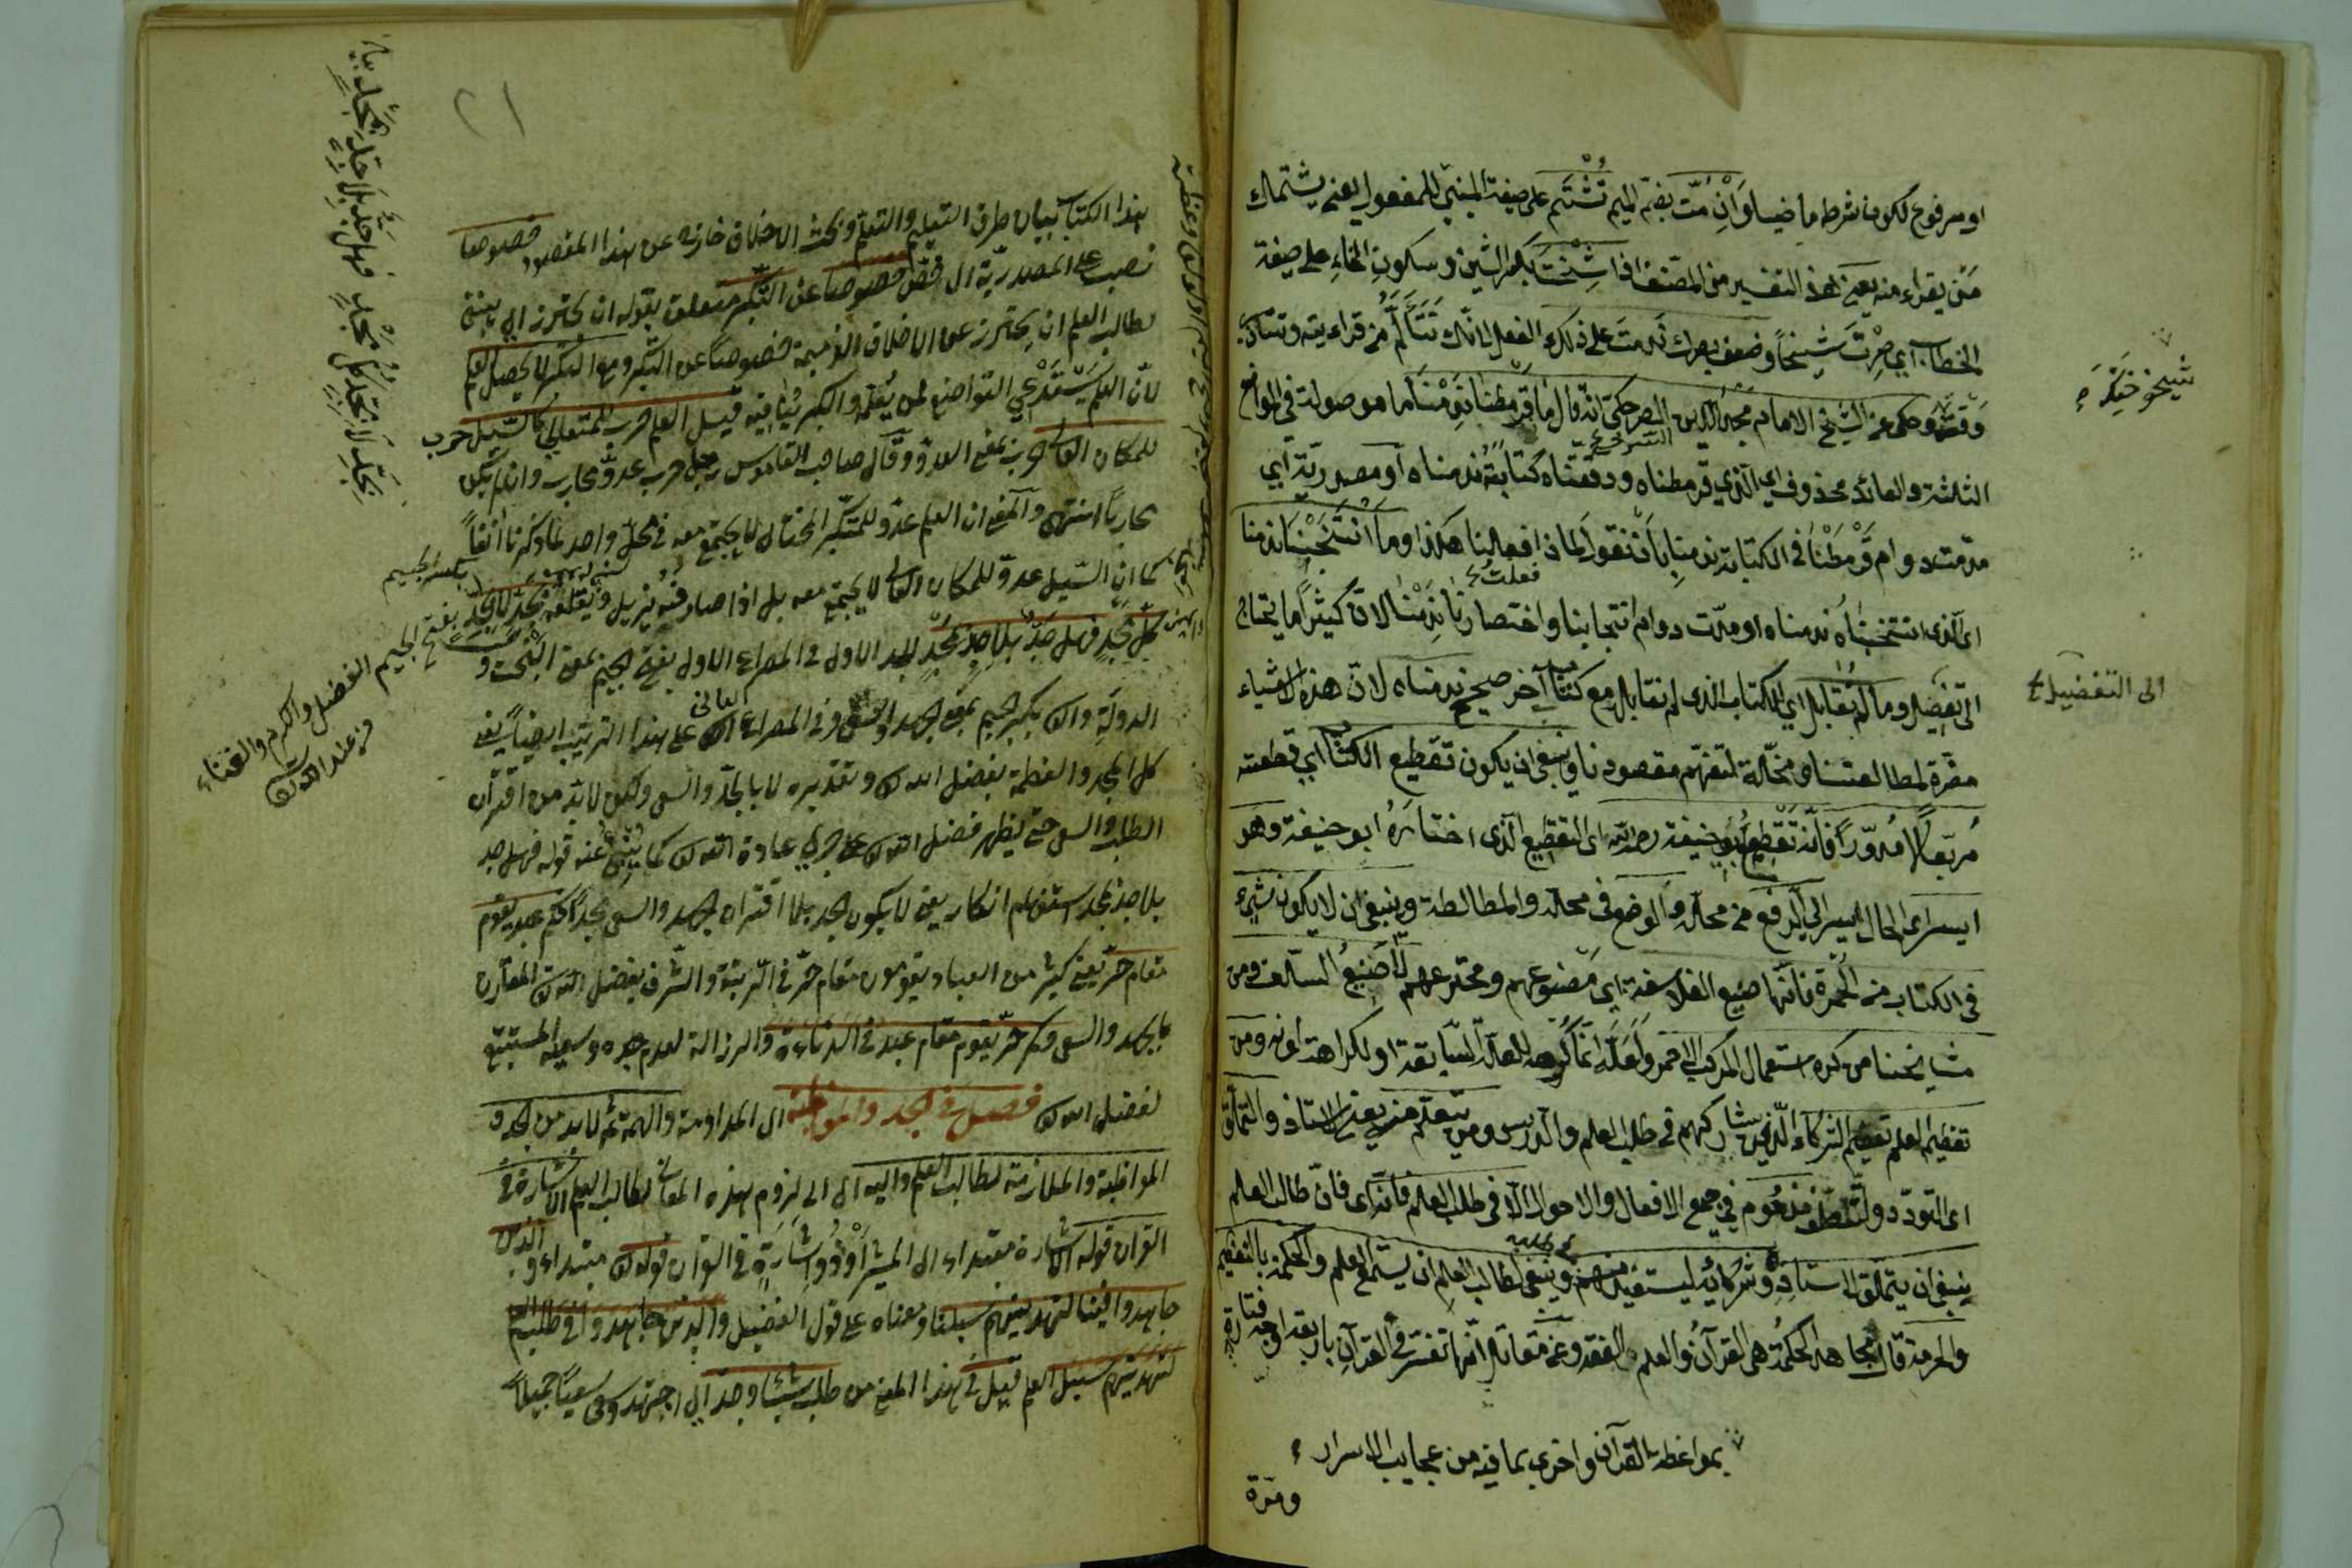 او مرفوع لكون شرط ماضيا وَاِنْ مُتّ بضمّ الميم تُشْتَم على صيغة المبنيّ للمفعول يعني يشتمك
مَن يقراء منه يعني هذا التفسير من المصنف اذا شِخْتَ بكسر الشين وسكون الخاءِ على صيغة
الخطاب اي صِرْتَ شيخاً وضعف بصرك نَدِمتَ على ذلك الفعل لانّك تَتَأَلَّم من قراءته وتتأذى
وقته وحكى عن الشيخ الامام مجد الدين الصرحكى انه قال ما قرمطنا نَدِمْنَا ما موصولة في المواضع
الثلثة والعائد محذوف اي الذي قرمطناه ودققناه كتابةً ندمناه او مصدريّة اي
مدّة دوام قَرْمَطْنا في الكتابة ندمنا بأن نقول لماذا فعلنا هكذا وما انْتَخَبْنَا ندمنا
اى الّذى انتخبناه ندمناه او مدّت دوام انتخابنا واختصارنا نَدِمْنا لانّ كثيراً ما يحتاج
الى تفضيل وما لم نُقابل اي الكتاب الذى لم نقابل مع كتاب آخر صحيح ندمناه لانّ هذه الاشياء
مضرّة لمطالعتنا ومخلّة لتفهّم مقصودنا وينبغى ان يكون تقطيع الكتاب اي قطعته
مُربّعاً لا مُدوّراً فانّه تقطيع ابو حنيفة رحمه الله اى التقطيع الذى اختاره ابو حنيفة وهو
ايسر اى الحال ايسر الى الرفع من محلّه والوضع فى محله والمطالعة وينبغى ان لا يكون شىء
فى الكتاب من الحُمرة فانّها صنيع الفلاسفة اى مصنوعهم ومخترعهم لا صنيع السّلف ومن
مشايخنا من كره استعمال المركب الاحمر ولعلّه انّما كُره للعلّة السّابقة او لكراهة لونه ومن
تعظيم العلم تعظيم الشركاء الّذين شاركهم فى طلب العلم والدرس ومن يتعلّم منه يعني الاستاذ والتملّق
اى التودّد والتّلطّف مذمُوم في جميع الافعال والاحوال الّا فى طلب العلم فانّه اى فانّ طالب العلم
ينبغى ان يتملّق لاستاذِه وشركائه ليستفيد منهم وينبغى لطالب العلم ان يستمع العلم والحكمة بالتعظيم
والحرمة قال مجاهد الحكمة هى القرآن والعلم والفقه وعن مقاتل انّها تفسّر في القرآن باربعة اوجه فتارة
بمواعظ القرآن واخرى بما فيه من عجايب الاسرار
ومرّة
الى التفضيل
٢١
هذا الكتاب بيان طرق التعليم والتعلّم وبحث الاخلاق خارج عن هذا المقصود خصوصا
نصب على المصدريّة اى خصّ خصوصا عن التكبّر متعلق بقوله ان يحترز اي ينبغى
لطالب العلم ان يحترز عن الاخلاق الذميمة خصوصاً عن التكبر ومع التكبر لا يحصل العلم
لانّ العلم يَسْتَدْعي التواضع لمن يُعَلّمه والكبر يُنافيه قيل العلم حرب للمتعالي كالسّيل حرب
للمكان العالى حرب بمعنى العدوّ وقال صاحب القاموس رجل حرب عدوّ محارب وان لم يكن
محارباً انتهى والمعنى ان العلم عدوّ للمتكبّر المختال لا يجتمع معه في محلّ واحد لما ذكرنا آنفاً
كما ان السّيل عدوّ للمكان العالى لا يجتمع معه بل اذا صادفه يزيل ويقلعه بجدّ لا بجدّ
كلّ مجدٍ فهل جدٌّ بلا جدّ بمجدٍ الجد الاول فى المصراع الاول بفتح الجيم بمعنى البخت و
الدولة والثانى بكسر الجيم بمعنى الجهد والسعى وفى المصراع الثانى على هذا الترتيب ايضاً يعني
كل المجد والعظمة بفضل الله تعالى وتقديره لا بالجدّ والسعى ولكن لا بدّ من اقتران
الطلب والسعى حتى يظهر فضل الله تعالى على جرى عادة الله تعالى كما يُنبئ عنه قوله فهل جد
بلا جد بمجد استفهام انكار يعنى لا يكون الجد بلا اقتران الجهد والسعى مجداً فكم عبدٍ يقوم
مقام حرّ يعني كثير من العباد يقومون مقام حرّ فى الرتبة والشرف بفضل الله تعالى المقارن
بالجهد والسعى وكم حرّ يقوم مقام عبد فى الدناءة والرزالة لعدم جده وسعيه المستتبع
لفضل الله تعالى فصل فى الجد والمواظبة اى المداومة والهمّة ثم لا بد من الجد و
المواظبة والملازمة لطالب العلم واليه اى الى لزوم هذه المعانى لطالب العلم الاشارة فى
القران قوله الاشارة مبتداء اى المشير او ذو اشارةٍ فى القران قوله تعالى مبتداء و الذين
جاهدوا فينا لنهدينهم سبلنا ومعناه على قول الفضيل والذين جاهدوا فى طلب العلم
لنهدينّهم سبيل العلم قيل فى هذا المعنى من طلب شيئا وجدّ اي اجتهد وسعى سعياً جميلاً
بفتح الجيم الفضل واكرم والغناء
من عند الله تعالى
بكسر الجيم